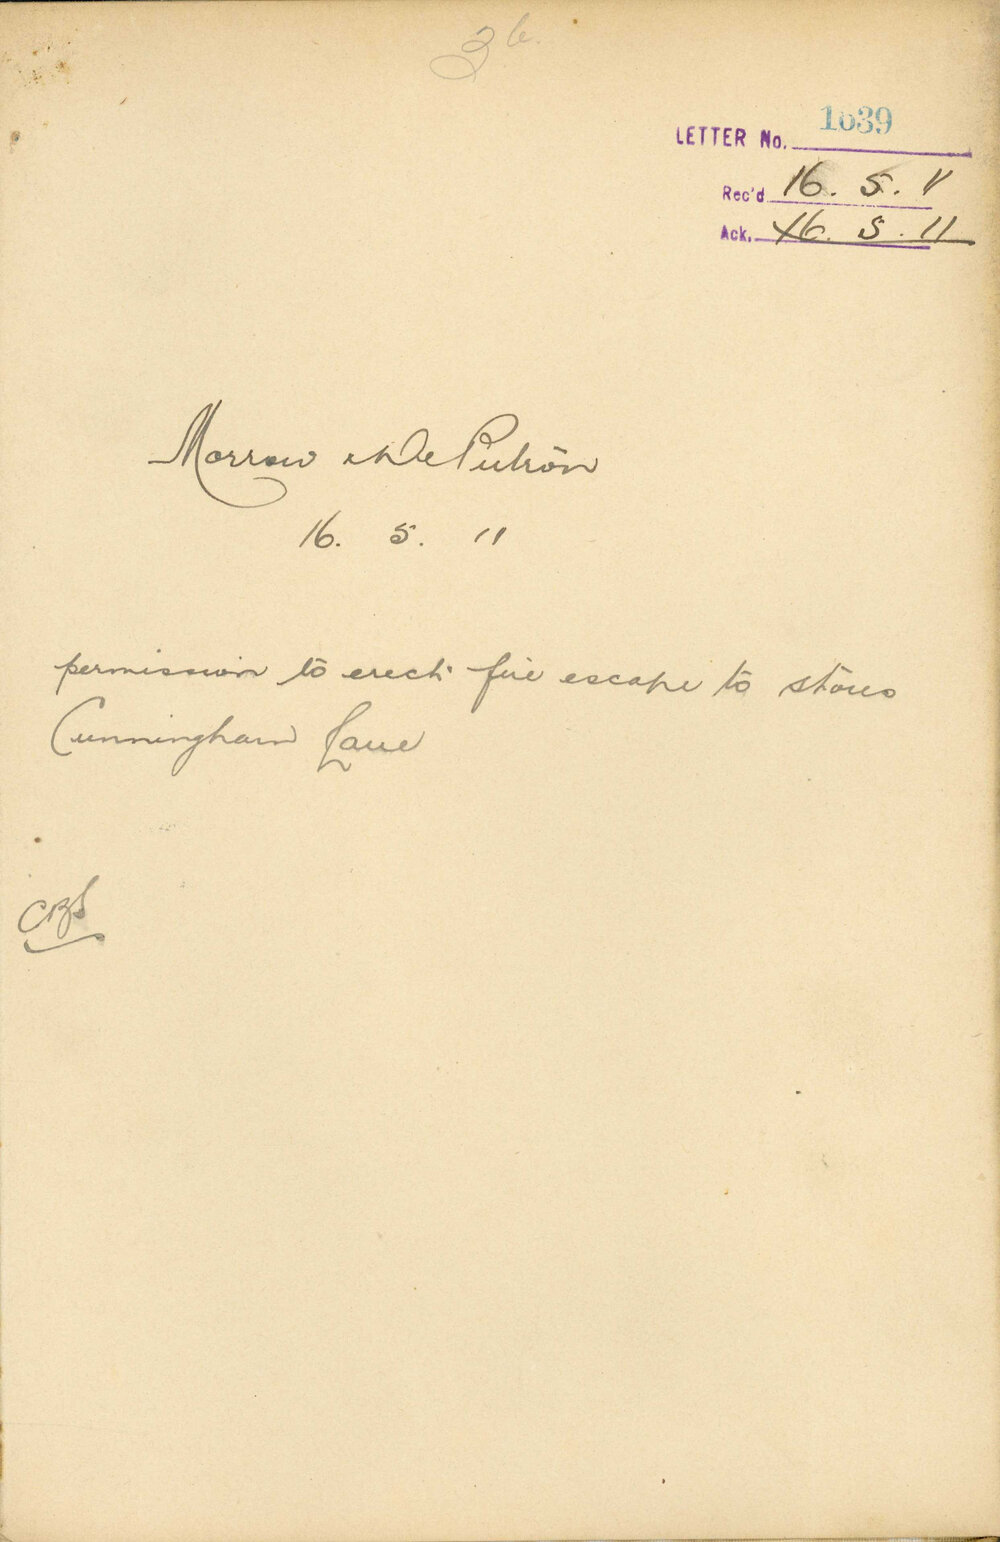 36.
LETTER No. 1639
Rec'd 16. 5. 11
Ack. 16. 5. 11
Morrow & De Putron
16. 5. 11
permission to erect fire escape to stores
Cunningham Lane
CBS